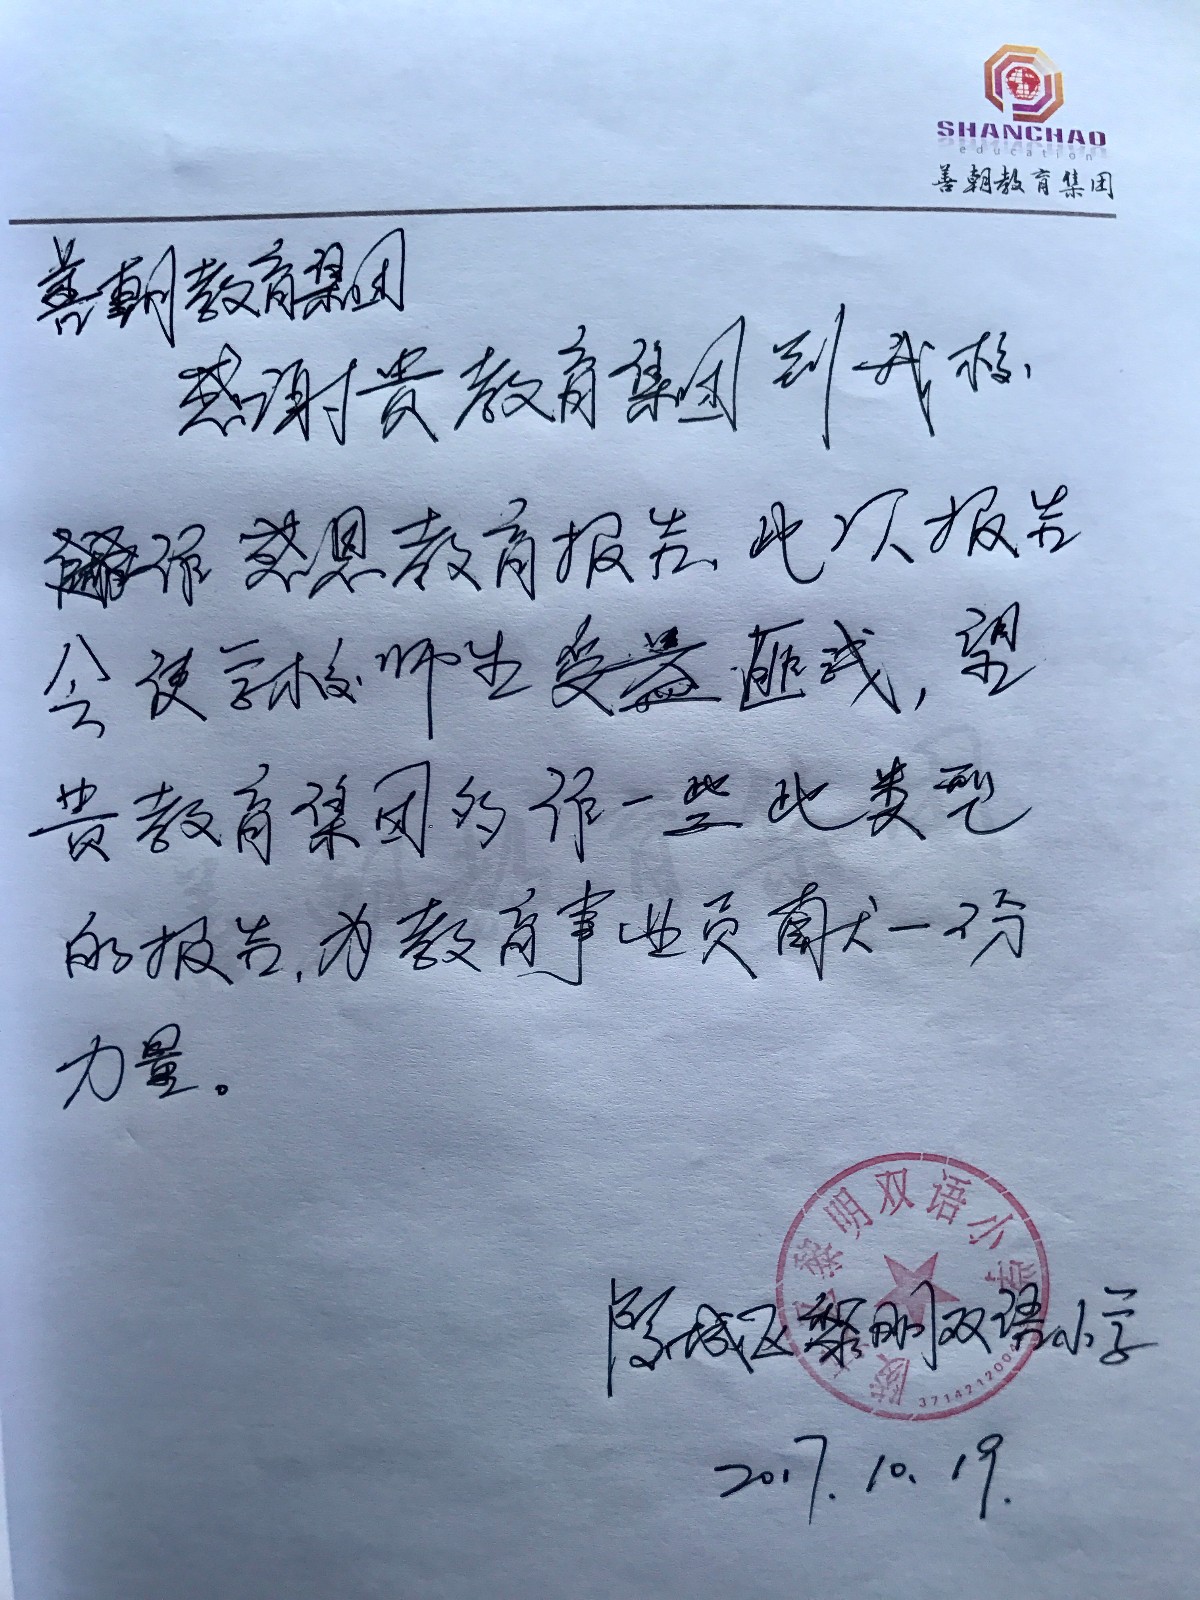 SHANCHAO
education
善朝教育集团
善朝教育集团
感谢贵教育集团到我校
作感恩教育报告,此次报告
会使学校师生受益匪浅,望
贵教育集团多作一些此类型
的报告,为教育事业贡献一份
力量。
陵城区黎明双语小学
陵城区黎明双语小学
2017.10.19.